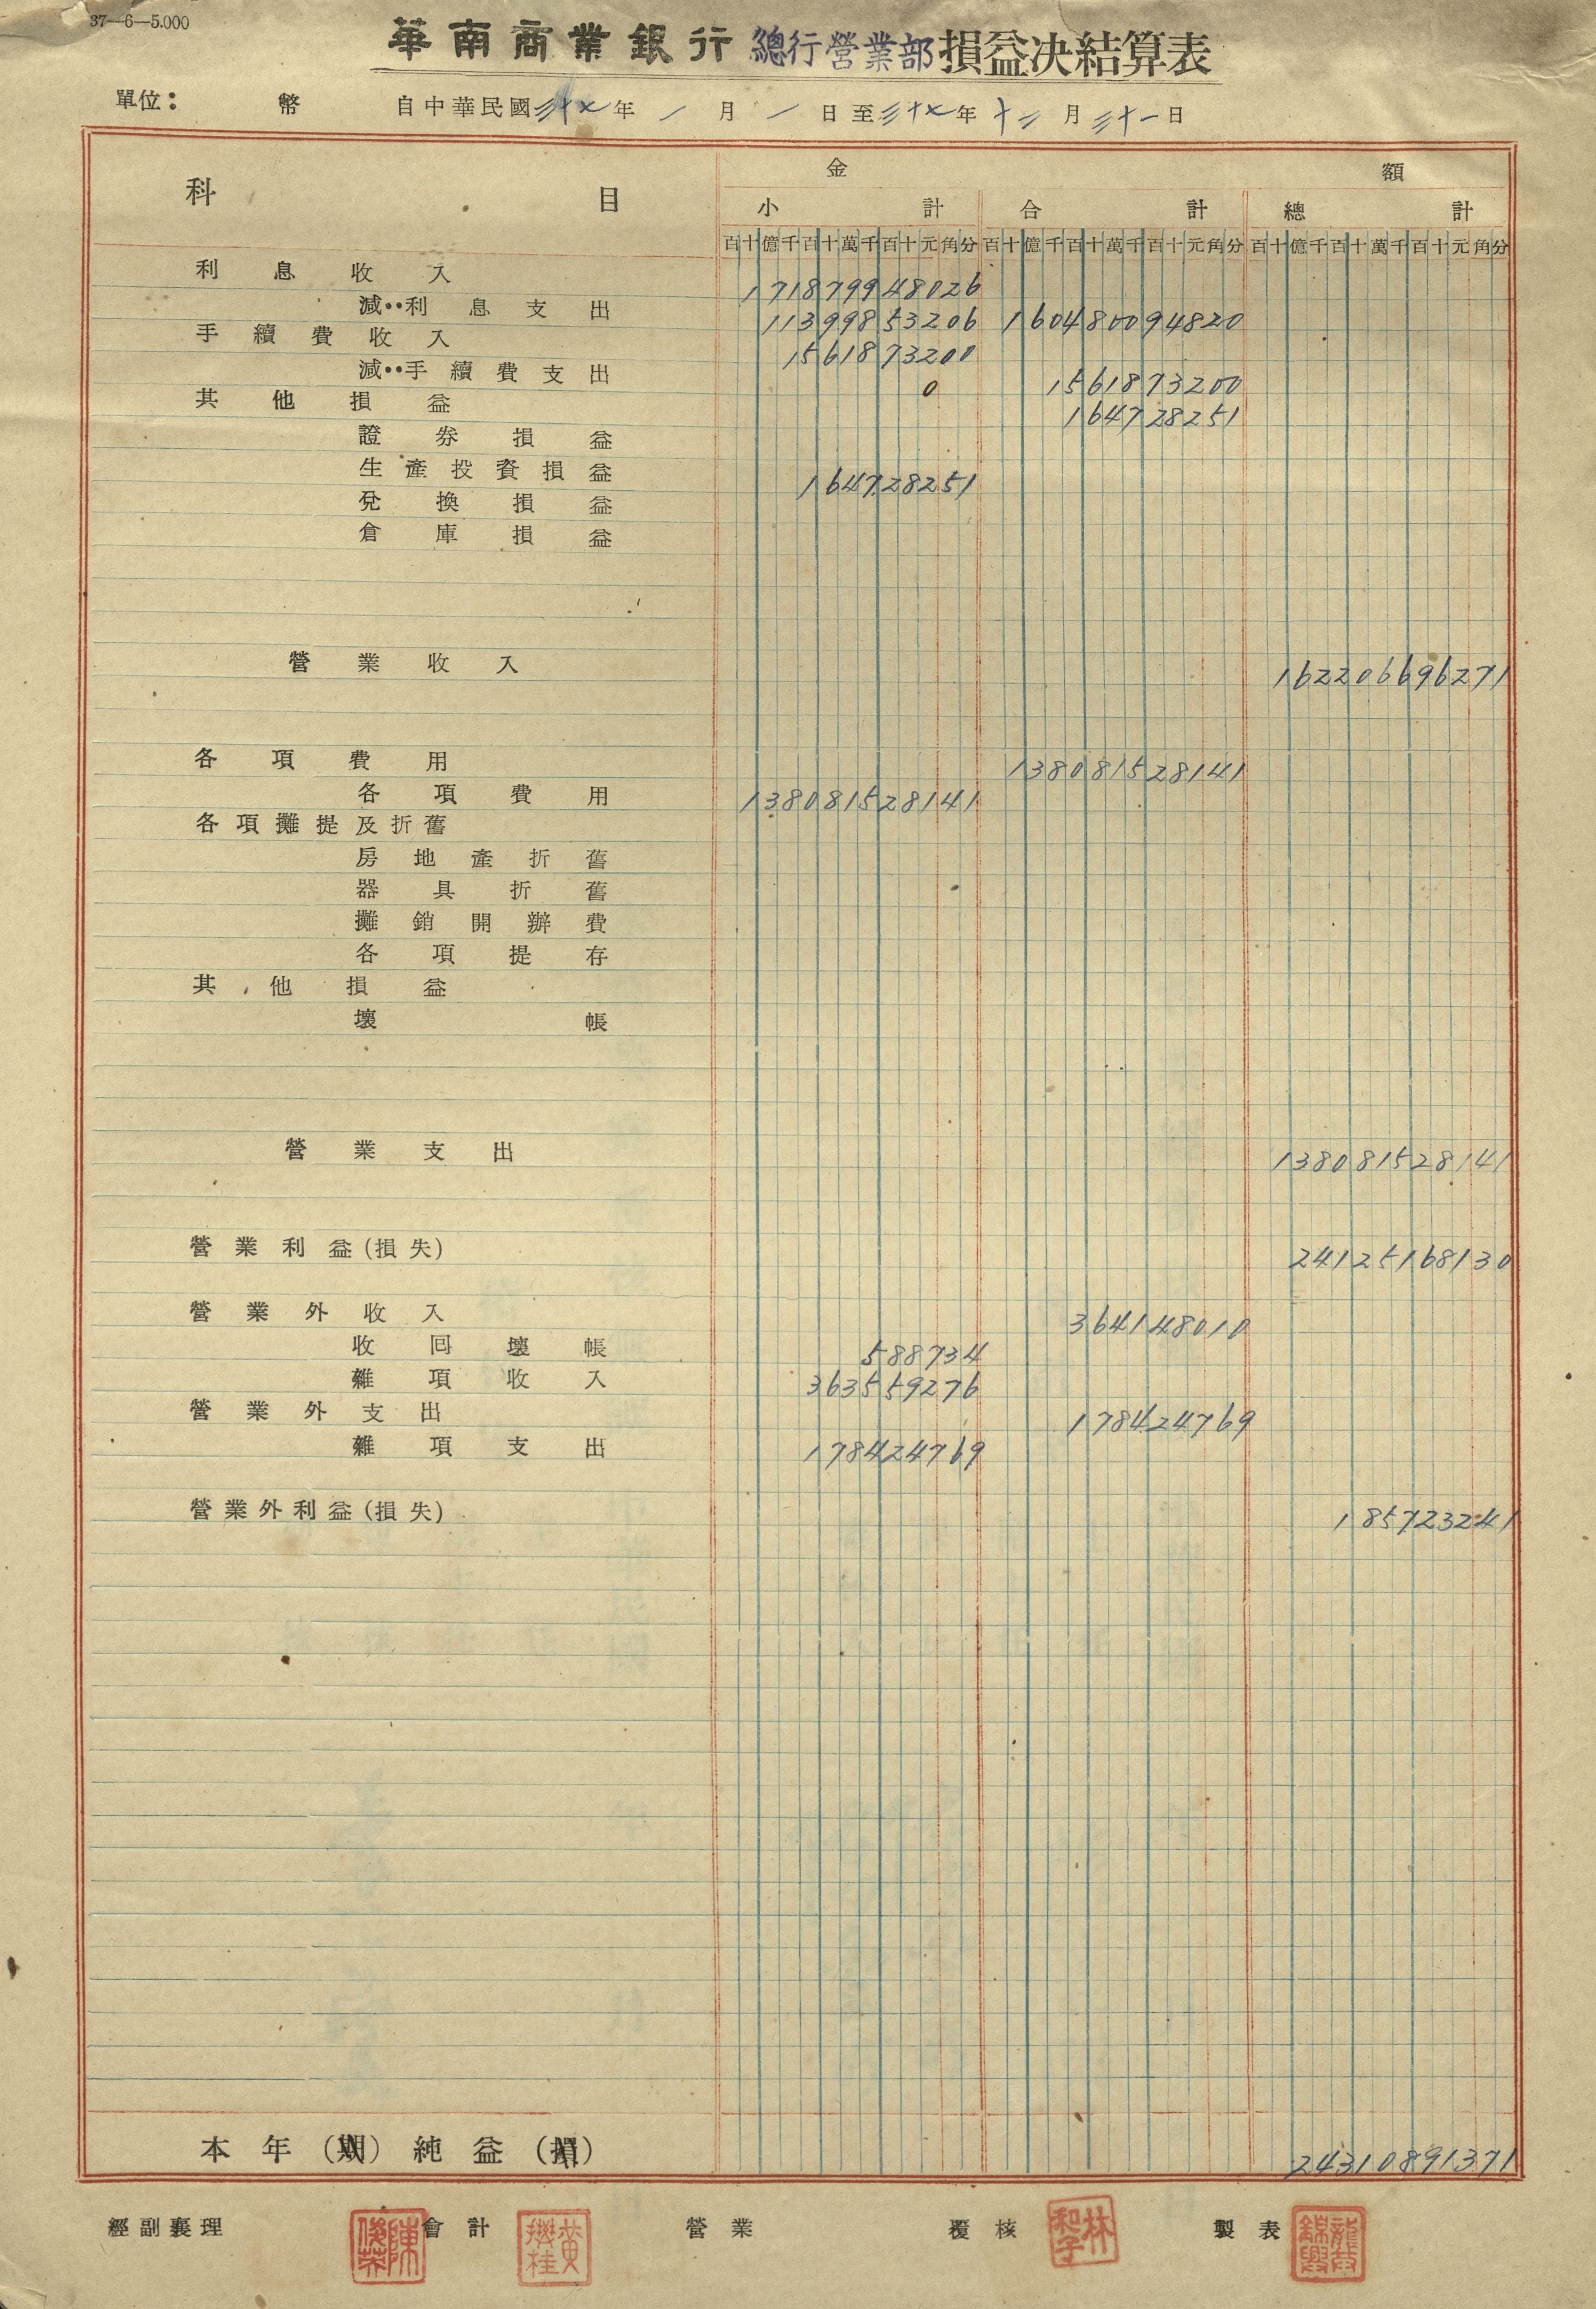 37—6—5.000
華南商業銀行總行營業部損益決結算表
單位： 幣 自中華民國三十七年一月一日至三十七年十二月三十一日
科目 金額
小計 合計 總計
百十億千百十萬千百十元角分 百十億千百十萬千百十元角分 百十億千百十萬千百十元角分
利息收入 171879948026
減：利息支出 11399853206 160480094820
手續費收入 1561873200
減：手續費支出 0 1561873200
其他損益 164728251
證券損益
生產投資損益 164728251
兌換損益
倉庫損益
營業收入 162206696271
各項費用 138081528141
各項費用 138081528141
各項攤提及折舊
房地產折舊
器具折舊
攤銷開辦費
各項提存
其他損益
壞帳
營業支出 138081528141
營業利益(損失) 24125168130
營業外收入 364148010
收回壞帳 588734
雜項收入 363559276
營業外支出 178424769
雜項支出 178424769
營業外利益(損失) 185723241
本年(期)純益(損) 24310891371
經副襄理 會計 營業 覆核 林和子 製表